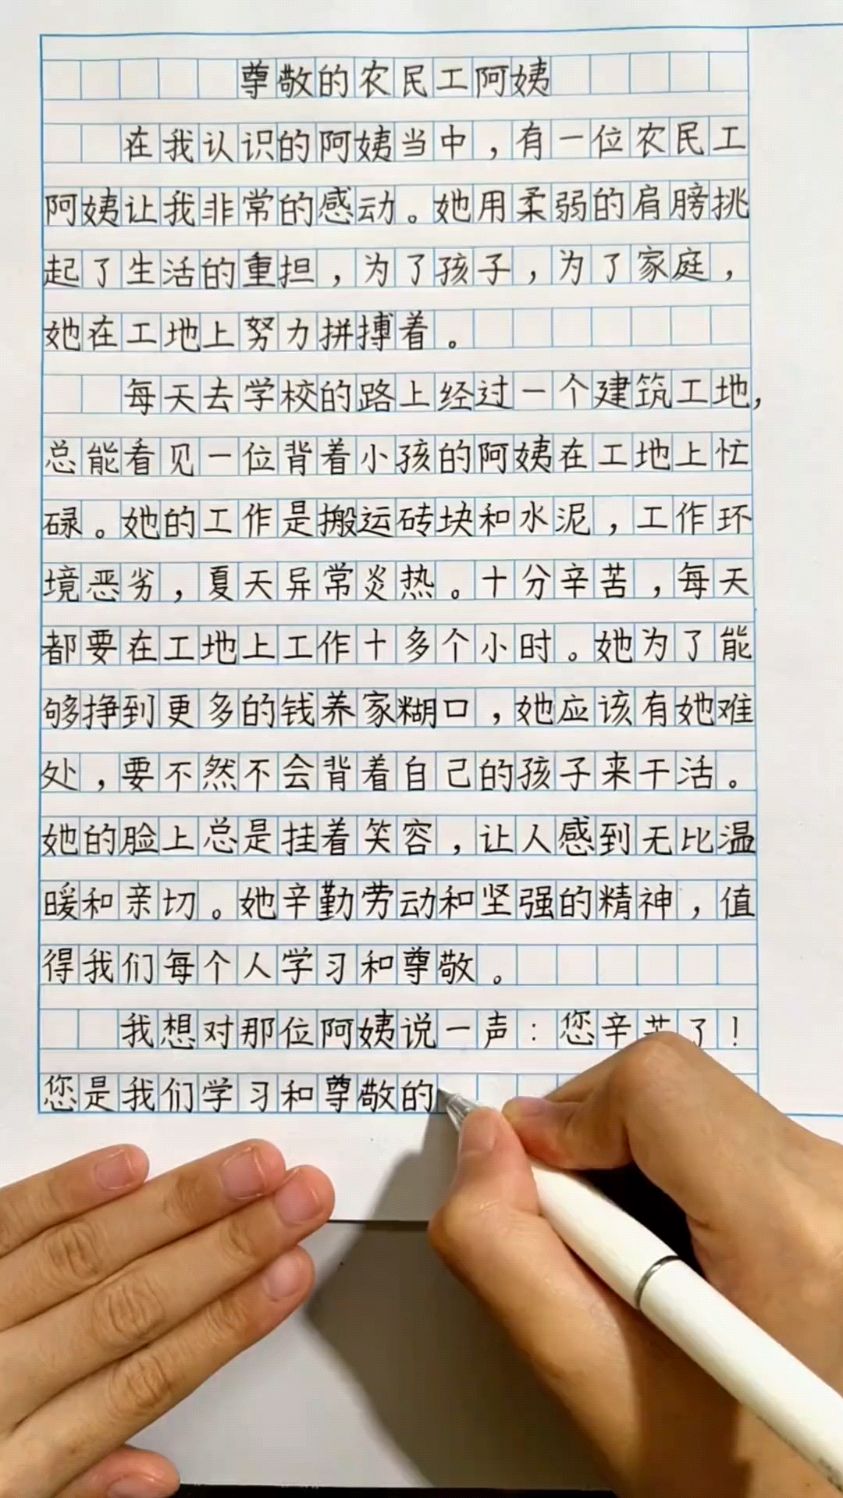 尊敬的农民工阿姨
在我认识的阿姨当中，有一位农民工
阿姨让我非常的感动。她用柔弱的肩膀挑
起了生活的重担，为了孩子，为了家庭，
她在工地上努力拼搏着。
每天去学校的路上经过一个建筑工地，
总能看见一位背着小孩的阿姨在工地上忙
碌。她的工作是搬运砖块和水泥，工作环
境恶劣，夏天异常炎热。十分辛苦，每天
都要在工地上工作十多个小时。她为了能
够挣到更多的钱养家糊口，她应该有她难
处，要不然不会背着自己的孩子来干活。
她的脸上总是挂着笑容，让人感到无比温
暖和亲切。她辛勤劳动和坚强的精神，值
得我们每个人学习和尊敬。
我想对那位阿姨说一声：您辛苦了！
您是我们学习和尊敬的